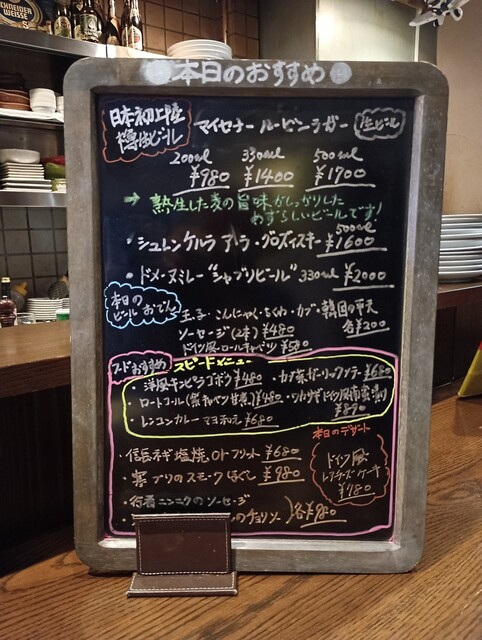 SCHNEIDER
WEISSE
本日のおすすめ
日本初上陸
樽生ビール
マイセナー ルービンラガー
生ビール
200ml 330ml 500ml
¥980 ¥1400 ¥1900
→ 熟生した麦の旨味がしっかりした
めずらしいビールです!
・シュレンケルラ アラ・グロズィスキー 500ml ¥1600
・ドメ・ヌミレー "シャブリビール" 330ml ¥2000
本日の
ビールおでん
玉子・こんにゃく・ちくわ・カブ・韓国の平天
各¥200
ソーセージ(2本) ¥480
ドイツ風・ロールキャベツ ¥580
フードおすすめ
スピードメニュー
・洋風キンピラゴボウ ¥480
・カブ菜ガーリックソテー ¥680
・ロートコール(紫キャベツ甘煮) ¥480
・ワカサギドイツ風南蛮漬け
¥890
・レンコンカレーマヨ和え ¥680
・信長ネギ塩焼 orフリット ¥680
・寒ブリのスモークほぐし ¥980
・行者ニンニクのソーセージ
のチョリソー 各¥980
本日のデザート
ドイツ風
レアチーズケーキ
¥780